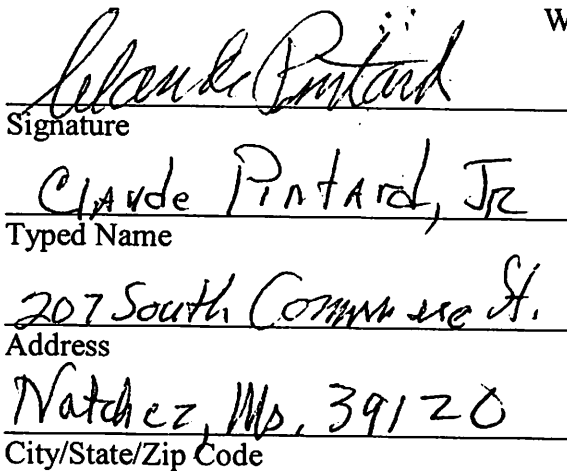 W
Claude Pintard
Signature
Claude Pintard, Jr
Typed Name
207 South Commerce St.
Address
Natchez, Ms. 39120
City/State/Zip Code